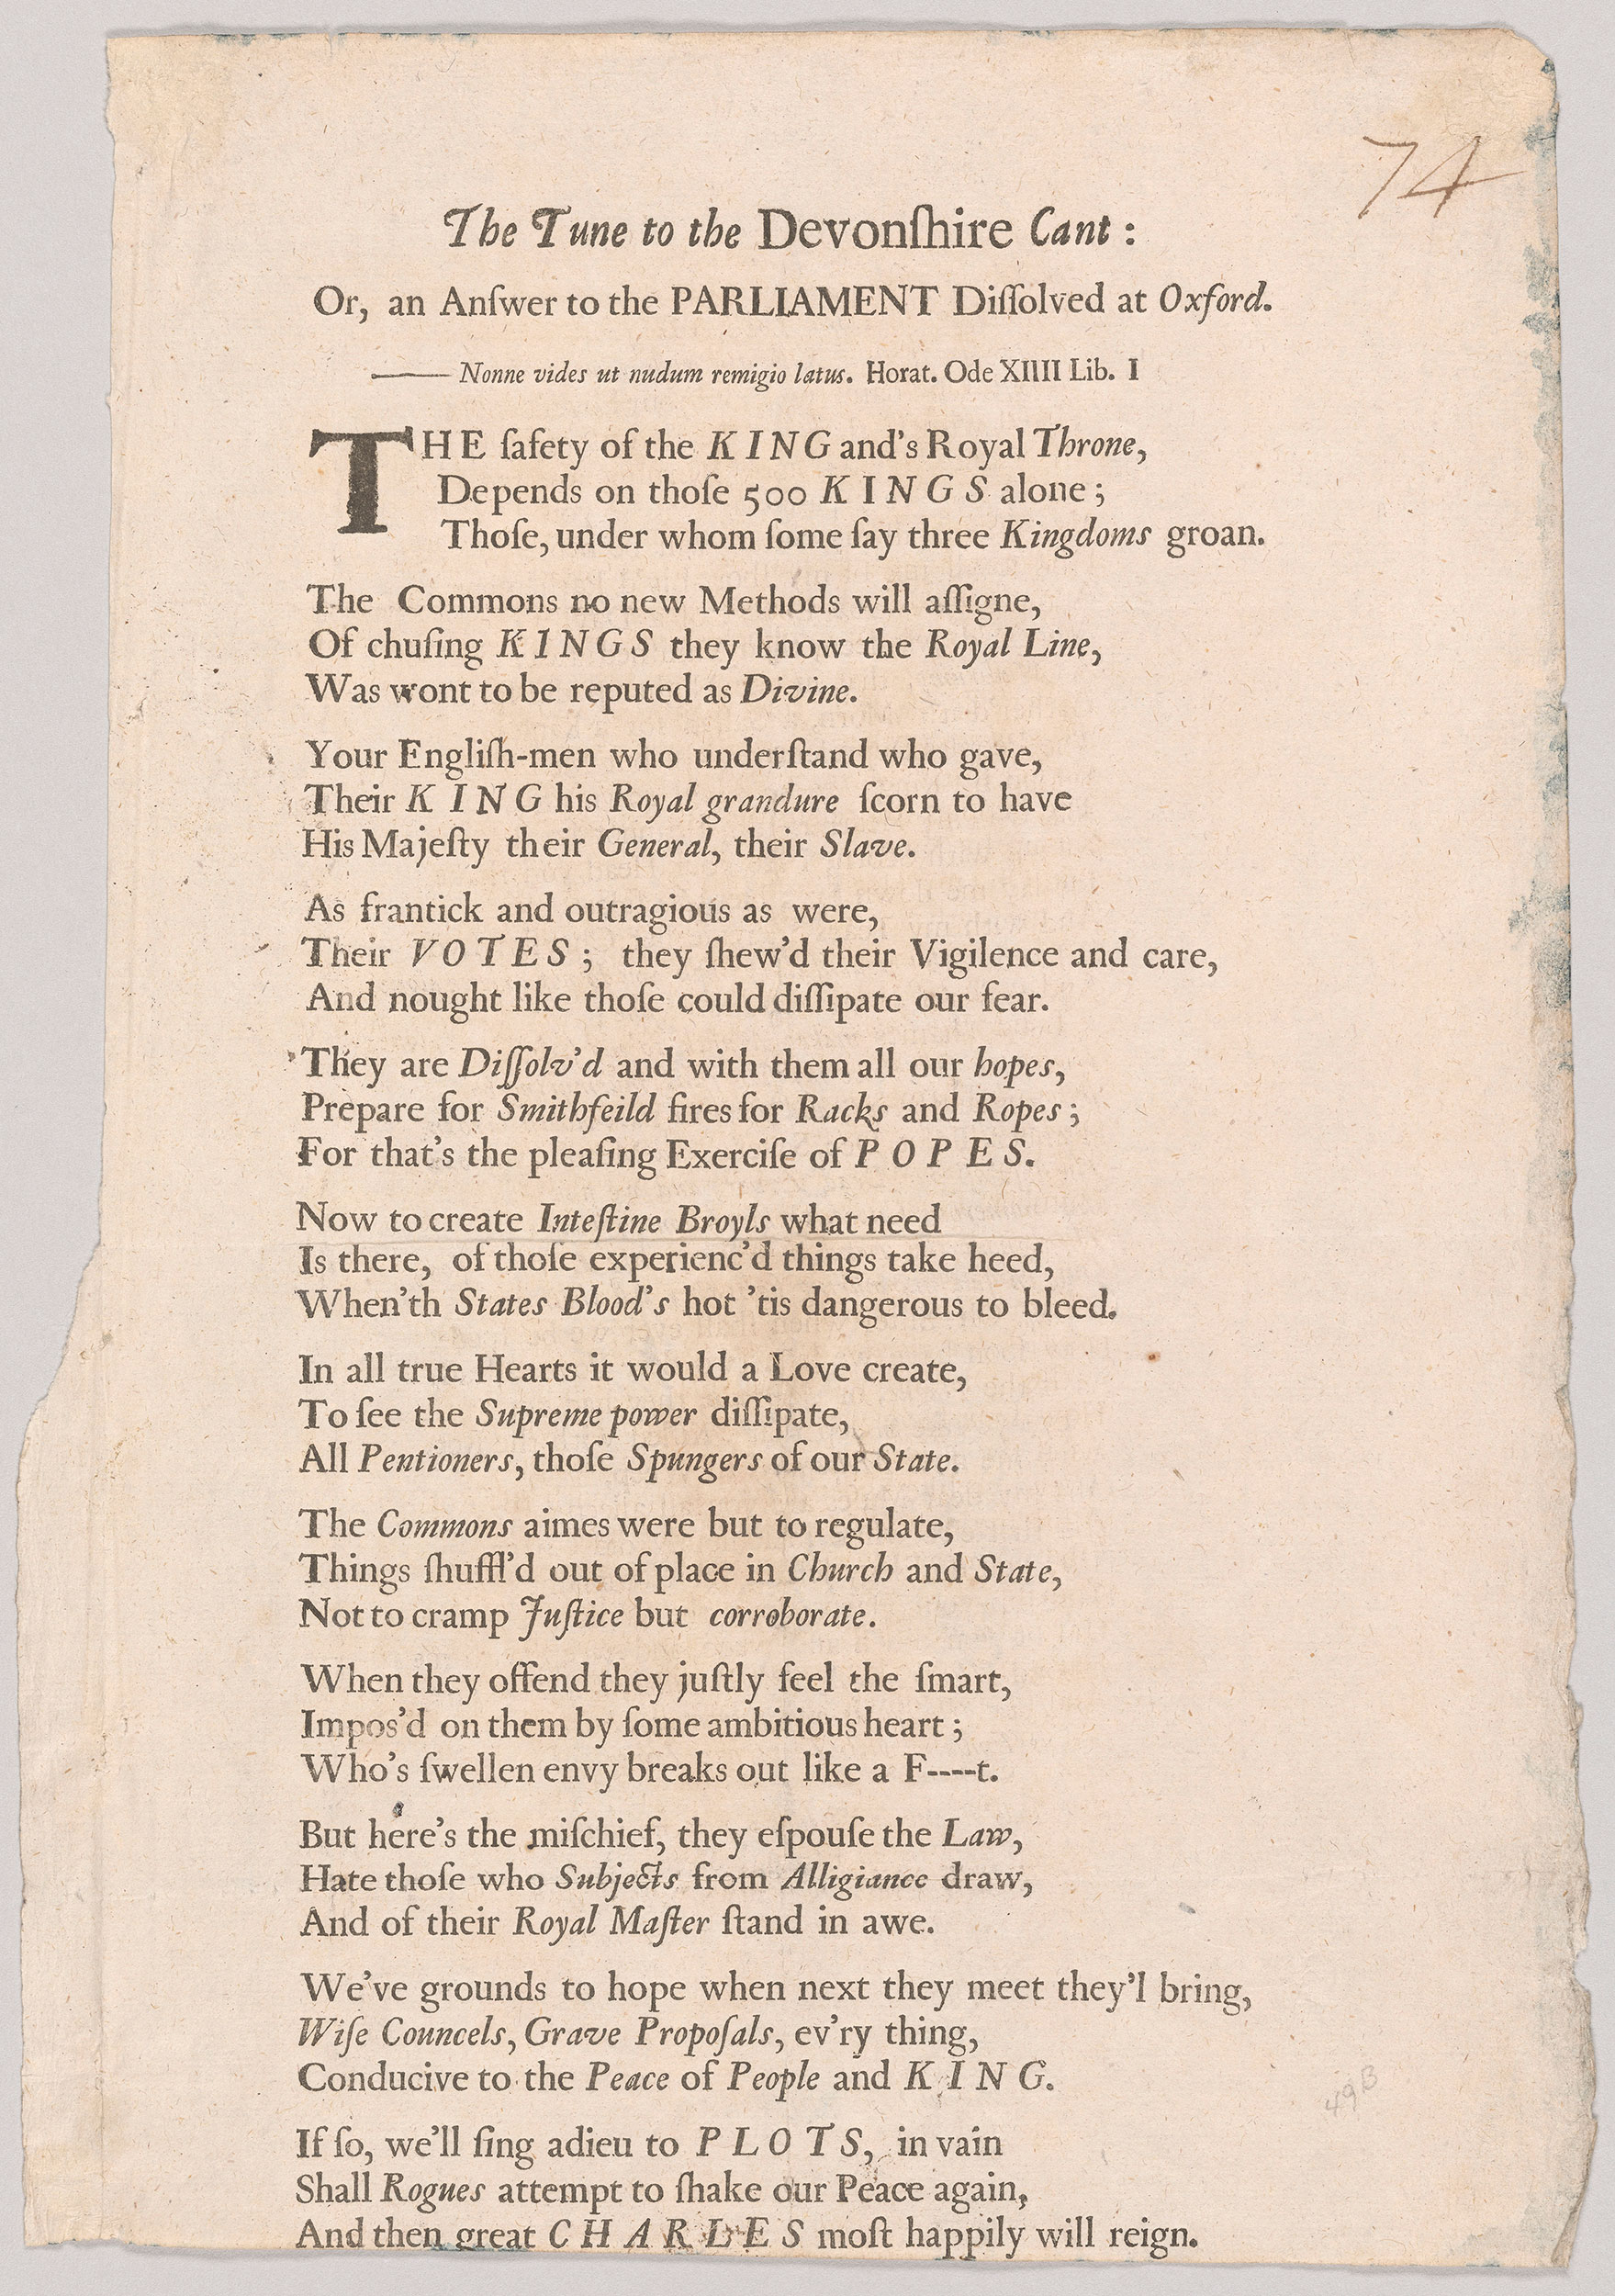 74
The Tune to the Devonſhire Cant :
Or, an Anſwer to the PARLIAMENT Diſſolved at Oxford.
—— Nonne vides ut nudum remigio latus. Horat. Ode XIIII Lib. I
THE ſafety of the KING and's Royal Throne,
Depends on thoſe 500 KINGS alone ;
Thoſe, under whom ſome ſay three Kingdoms groan.
The Commons no new Methods will aſſigne,
Of chuſing KINGS they know the Royal Line,
Was wont to be reputed as Divine.
Your Engliſh-men who underſtand who gave,
Their KING his Royal grandure ſcorn to have
His Majeſty their General, their Slave.
As frantick and outragious as were,
Their VOTES ; they ſhew'd their Vigilence and care,
And nought like thoſe could diſſipate our fear.
They are Diſſolv'd and with them all our hopes,
Prepare for Smithfeild fires for Racks and Ropes ;
For that's the pleaſing Exerciſe of POPES.
Now to create Inteſtine Broyls what need
Is there, of thoſe experienc'd things take heed,
When'th States Blood's hot 'tis dangerous to bleed.
In all true Hearts it would a Love create,
To ſee the Supreme power diſſipate,
All Pentioners, thoſe Spungers of our State.
The Commons aimes were but to regulate,
Things ſhuffl'd out of place in Church and State,
Not to cramp Juſtice but corroborate.
When they offend they juſtly feel the ſmart,
Impos'd on them by ſome ambitious heart ;
Who's ſwellen envy breaks out like a F----t.
But here's the miſchief, they eſpouſe the Law,
Hate thoſe who Subjects from Alligiance draw,
And of their Royal Maſter ſtand in awe.
We've grounds to hope when next they meet they'l bring,
Wiſe Councels, Grave Propoſals, ev'ry thing,
Conducive to the Peace of People and KING.
49B
If ſo, we'll ſing adieu to PLOTS, in vain
Shall Rogues attempt to ſhake our Peace again,
And then great CHARLES moſt happily will reign.